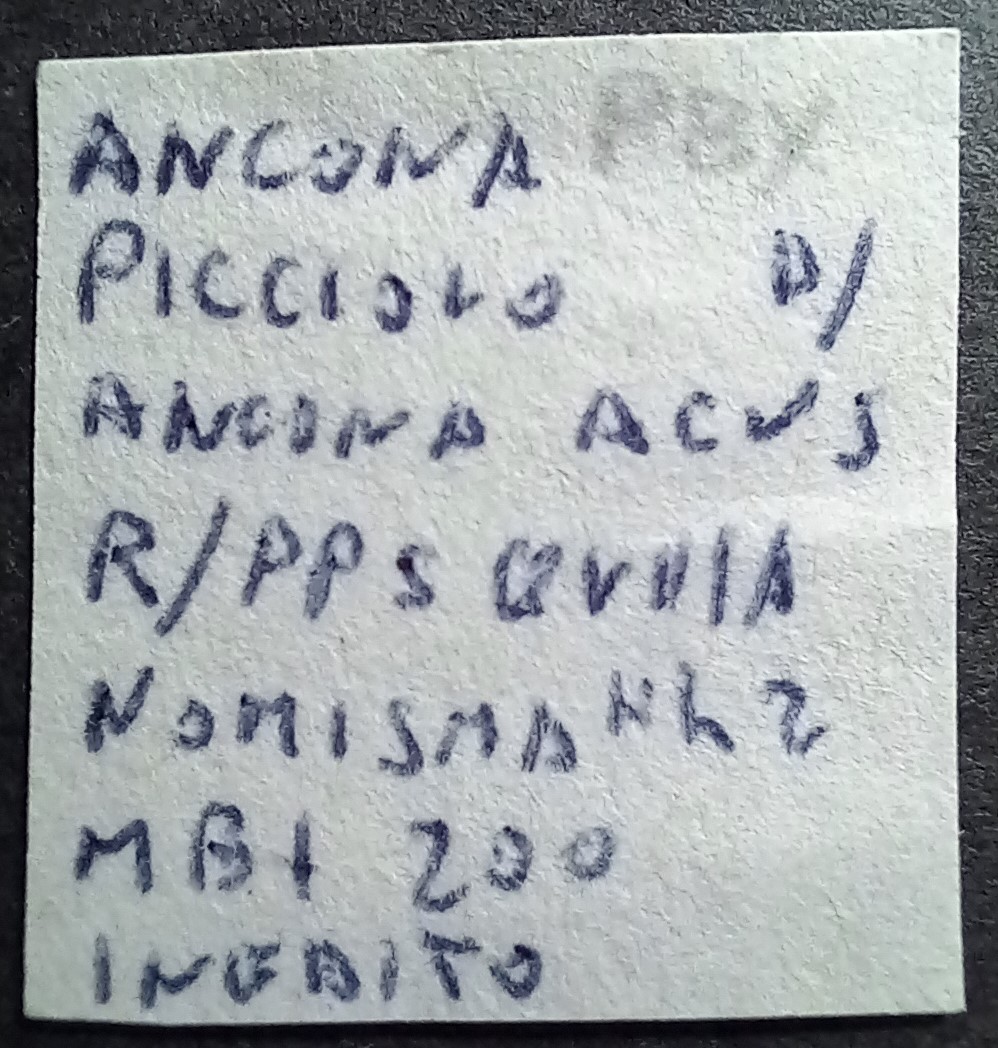 ANCONA
PICCIOLO D/
ANCONA ACVS
R/PPS QVIIIA
NOMISMA
MBI 200
INEDITO